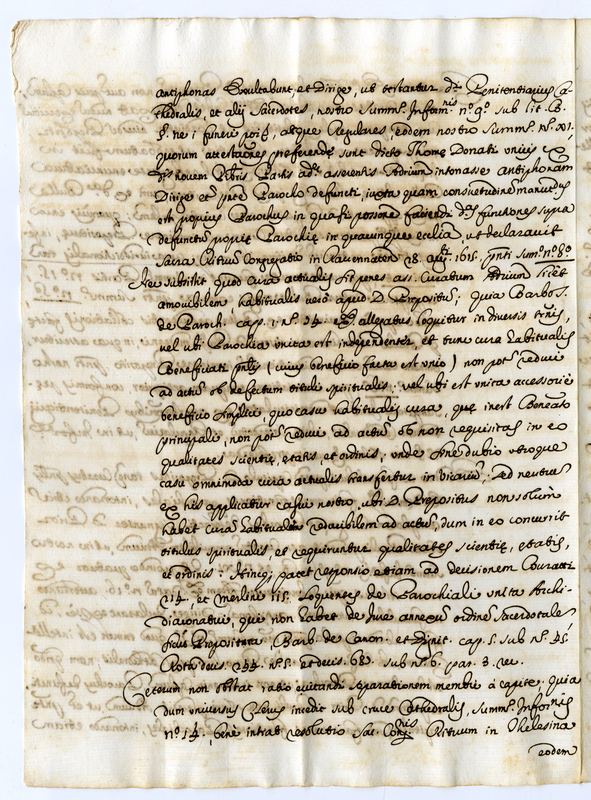 antiphonas Exultabunt, et Dirige, ut testantur D. Penitentiarius Ca-
thedralis, et alij Sacerdotes, nostro Summ.° Inform.nis n.° 9.° sub lit. B.
atque Regulares eodem nostro Summ.° n.° XI.
quorum attestationes preferende sunt dicto Thome Donati unius ex
novem Partis asserentis Adrium intonasse antiphonam
Dirige Parocho defuncti, iuxta quam consuetudinem
est proprius Parochus in quasi possessione faciendi functiones supra
defunctum proprie Parochie in quacunque ecclia, ut declaravit
Sacra Rituum Congregatio in Ravennaten 28. 1615. pnti Sum.° n.° 8.°
Nec subsistit quod cura actualis sit penes ass. Curatum Adrium licet
amovibilem, habitualis vero apud D. Prepositum; quia Barbos.
de Paroch. cap. 1. n.° 24. allegatus loquitur in diversis tnis,
vel ubi Parochia unita est independenter, et tunc cura habitualis
Beneficiati (cuius beneficio facta est unio) non pot. reduci
ad actum ob defectum tituli spiritualis: vel ubi est unita accessorie
beneficio simplici, quo casu habitualis cura, que inest Beneficio
principali, non pot. reduci ad actum ob non requisitas in eo
qualitates scientie, etatis, et ordinis, unde sine dubio utroque
casu omnimoda cura actualis transfertur in Vicarium: sed neutrum
ex his applicatur casui nostro, ubi D. Prepositus non solum
habet curam habitualem reducibilem ad actum, dum in eo concurrit
titulus spiritualis, et requiruntur qualitates scientie, etatis,
et ordinis: Hinc patet responsio etiam ad decisionem Buratti
214, et Merlini 115. loquentes de Parochiali unita Archi-
diaconatui, qui non habet de Jure annexum ordinem sacerdotalem
sicut Prepositura, Barb. de Canon. et Dignit. cap. 5. sub n.° 45
Rota decis. 244. n.° 5. et decis. 68. sub n.° 6. par. 3. rec.
Ceterum non obstat ratio evitandi separationem membri a capite, quia
dum universus Clerus incedit sub cruce Cathedralis, Summ.° Infor.nis
n.° 14. bene intrat resolutio Sac. Cong.nis Rituum in Thelesina
eodem